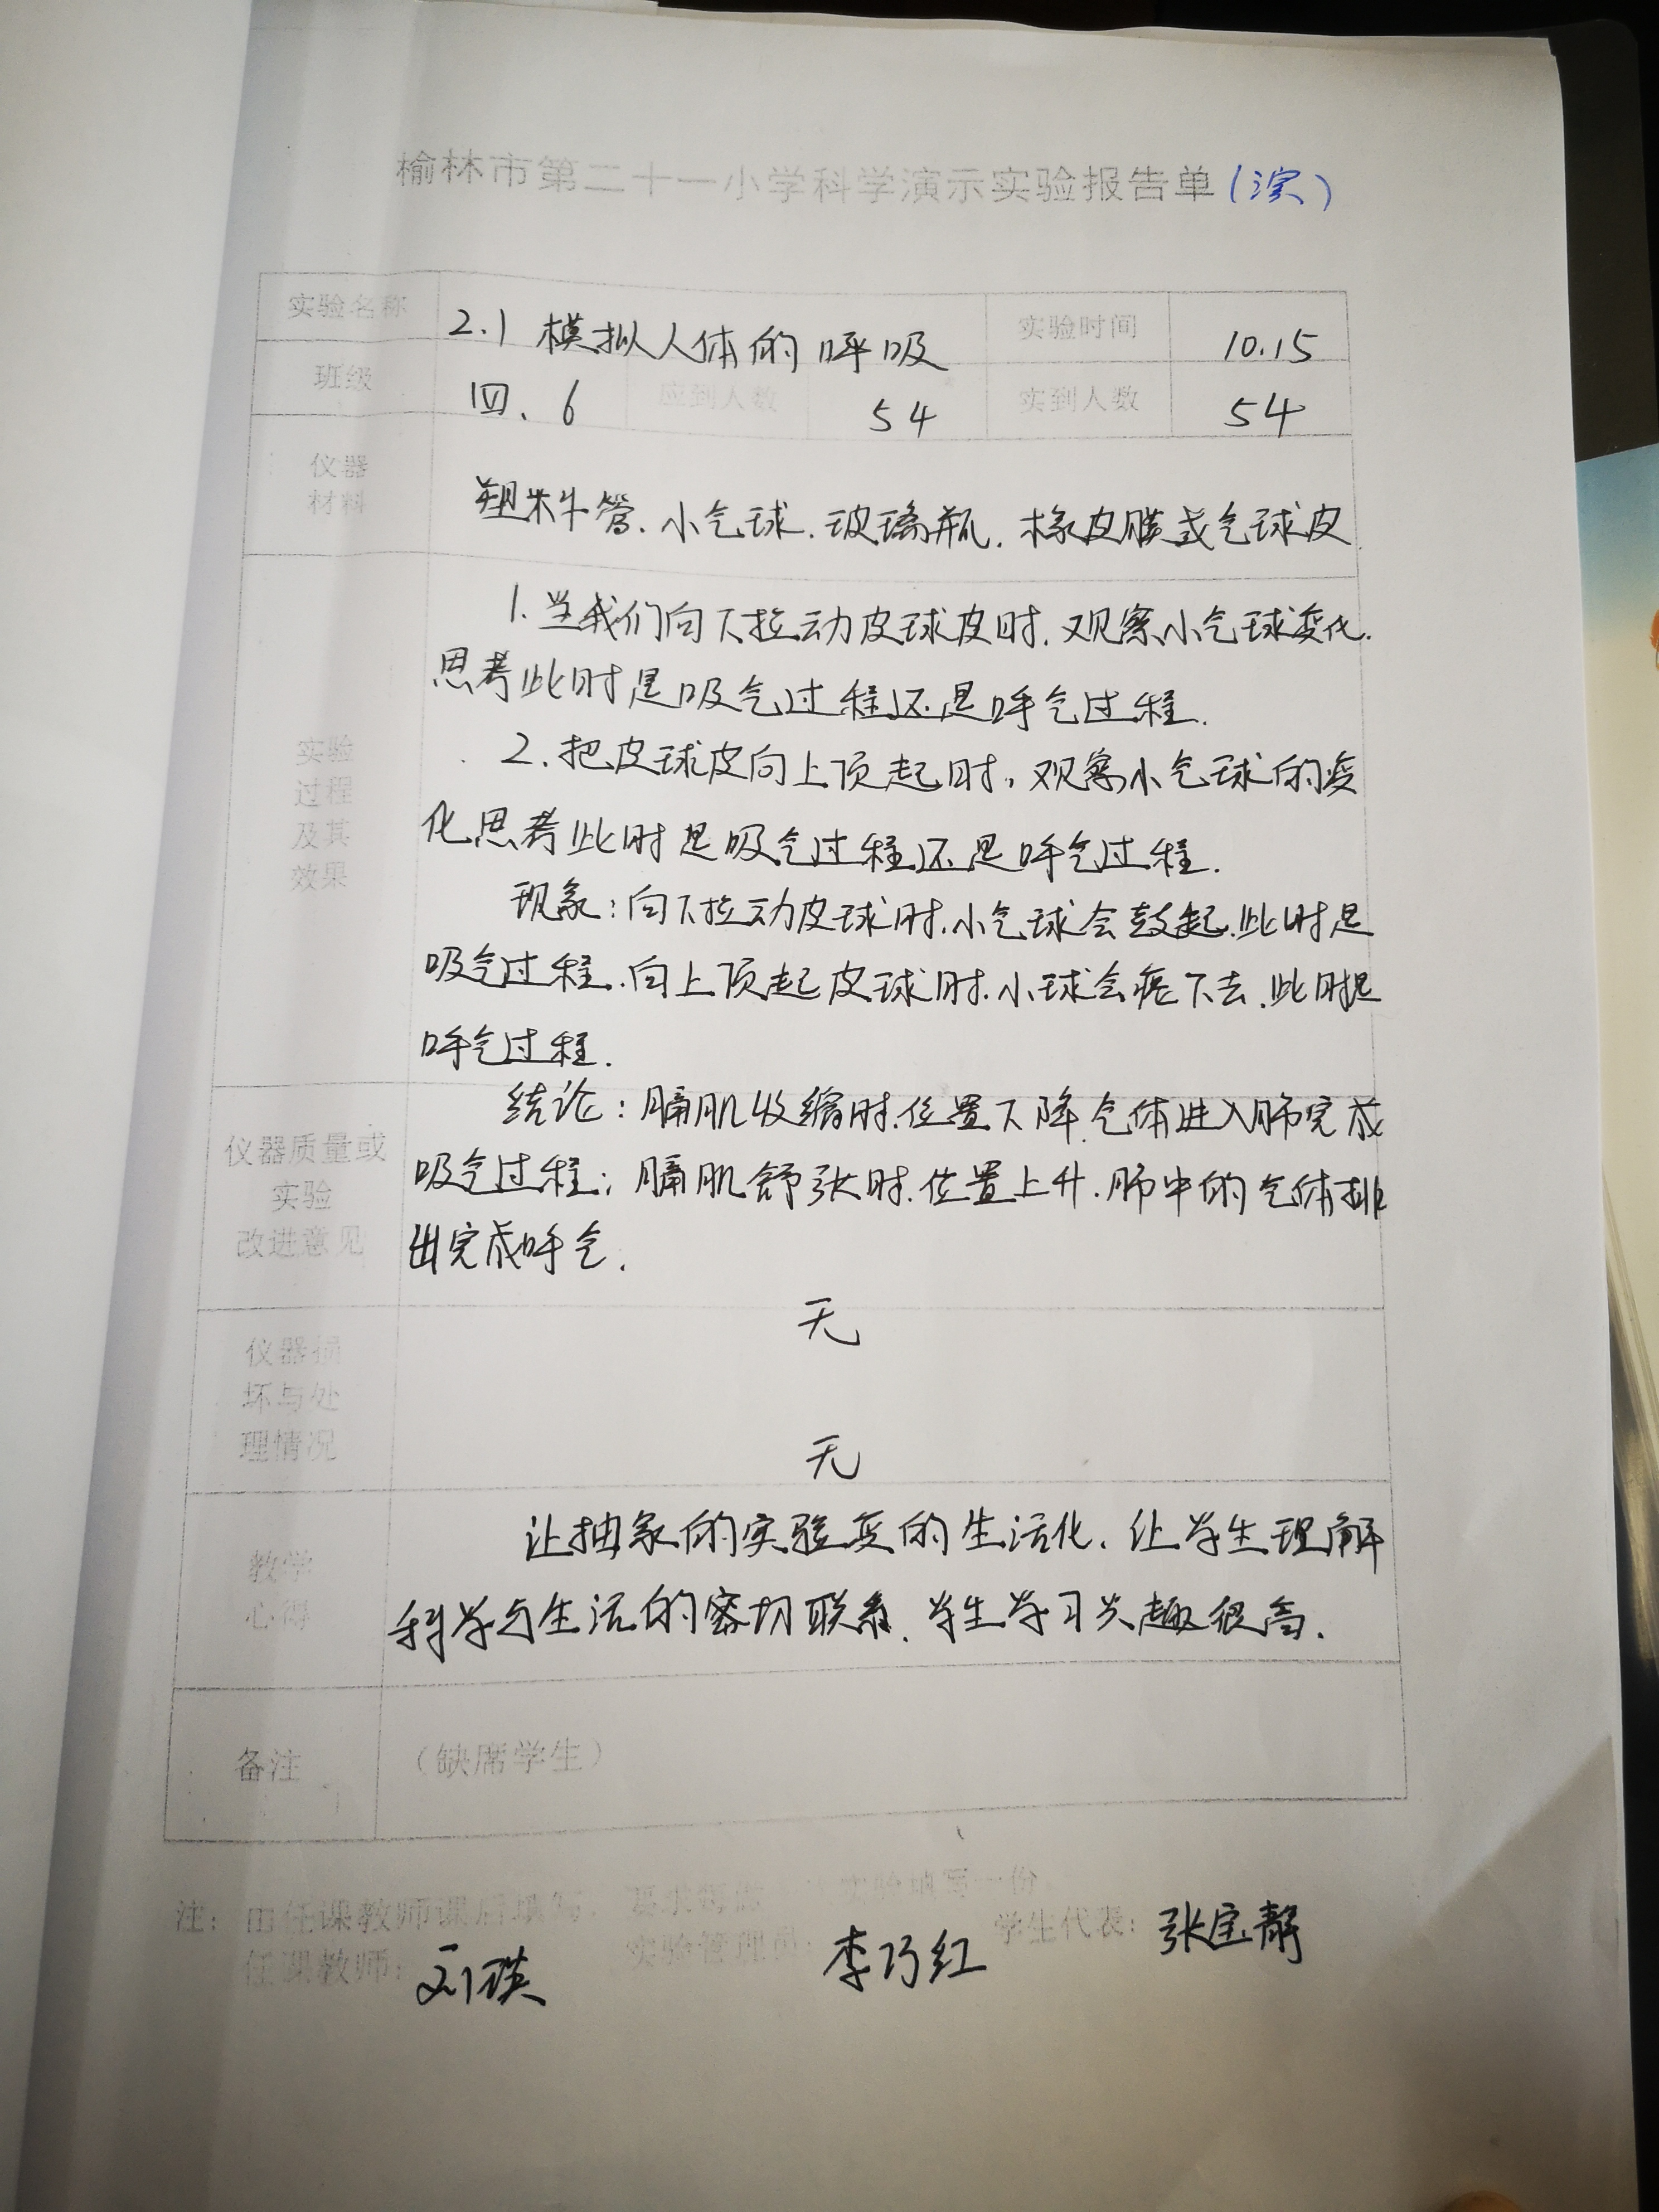 榆林市第二十一小学科学演示实验报告单(演)
实验名称 2.1 模拟人体的呼吸 实验时间 10.15
班级 四、6 应到人数 54 实到人数 54
仪器
材料
塑料管、小气球、玻璃瓶、橡皮膜或气球皮
实验
过程
及其
效果
1.当我们向下拉动皮球皮时,观察小气球变化.
思考此时是吸气过程还是呼气过程.
2.把皮球皮向上顶起时,观察小气球的变
化思考此时是吸气过程还是呼气过程.
现象:向下拉动皮球时.小气球会鼓起.此时是
吸气过程.向上顶起皮球时.小球会瘪下去.此时是
呼气过程.
结论:膈肌收缩时.位置下降.气体进入肺完成
吸气过程;膈肌舒张时.位置上升.肺中的气体排
出完成呼气.
仪器质量或
实验
改进意见
无
仪器损
坏与处
理情况
无
教学
心得
让抽象的实验变的生活化.让学生理解
科学与生活的密切联系.学生学习兴趣很高.
备注 (缺席学生)
注:由任课教师课后填写 要求每做 实验填写一份
任课教师: 刘琪 实验管理员: 李巧红 学生代表: 张宝静